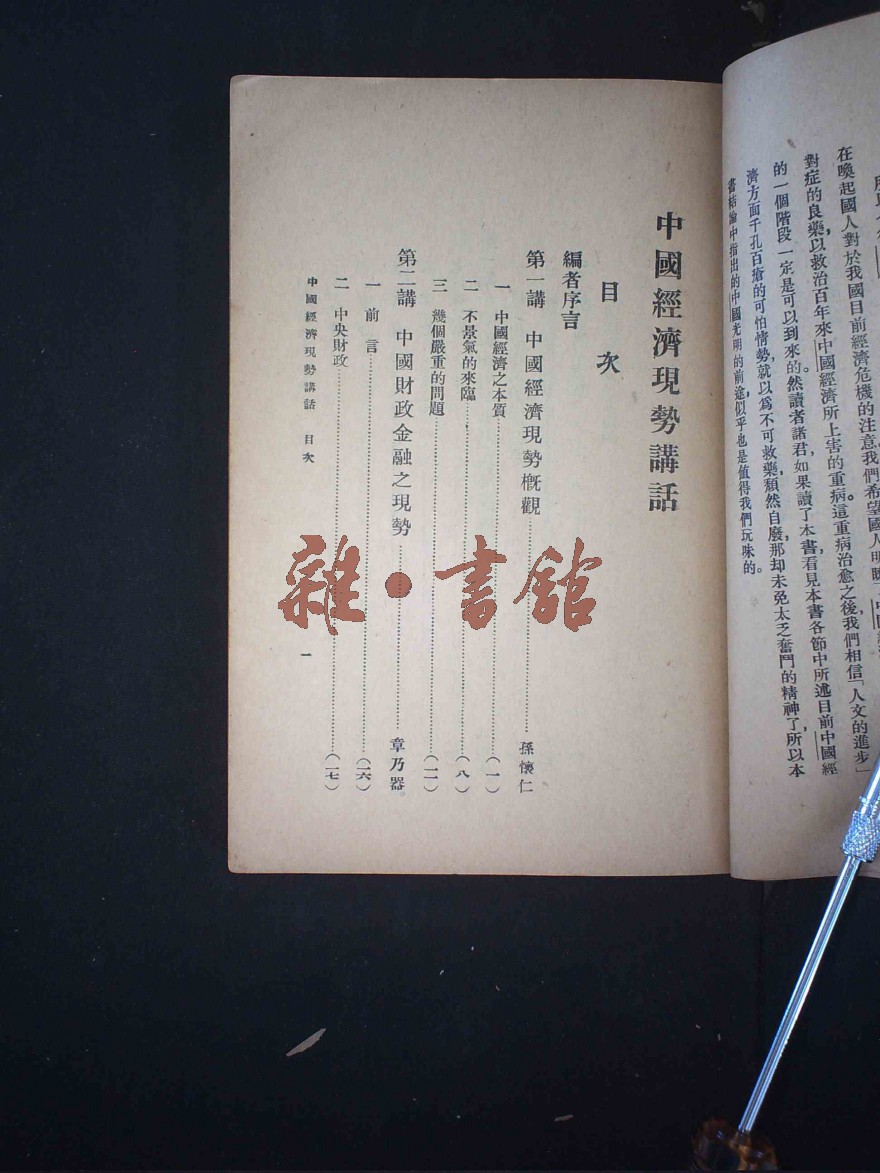 在喚起國人對於我國目前經濟危機的注意，我們希望國人明瞭了中國
對症的良藥，以救治百年來中國經濟所上害的重病。這重病治愈之後，我們相信「人文的進步」
的一個階段一定是可以到來的。然讀者諸君，如果讀了本書，看見本書各節中所述目前中國經
濟方面千孔百瘡的可怕情勢，就以爲不可救藥，頹然自廢，那却未免太乏奮鬥的精神了，所以本
書結論中指出的中國光明的前途，似乎也是值得我們玩味的。
中國經濟現勢講話
目次
編者序言
第一講 中國經濟現勢概觀……孫懷仁
一 中國經濟之本質……(一)
二 不景氣的來臨……(八)
三 幾個嚴重的問題……(一一)
第二講 中國財政金融之現勢……章乃器
一 前言……(一六)
二 中央財政……(一七)
中國經濟現勢講話 目次 一
雜·書館